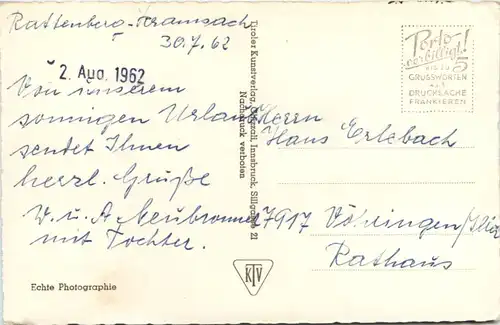 Rattenberg-Kramsach
30.7.62
2. Aug. 1962
Von unserem
sonnigen Urlaub
sendet Ihnen
herzl. Grüße
W. u. A. Neubronner
mit Tochter.
Echte Photographie
Tiroler Kunstverlag, Innsbruck, Sillgasse 21
Nachdruck verboten
KTV
Porto
verbilligt!
BIS ZU 5
GRUSSWORTEN
ALS
DRUCKSACHE
FRANKIEREN
Herrn
Hans Erlebach
7917 Vöhringen/Iller
Rathaus